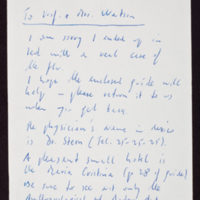 To Prof. & Mrs. Watson
I am sorry I ended up in
bed with a real case of
the flu.
I hope the enclosed guide will
help – please return it to us
when you get back
The physician's name in
is Dr. Stern (Tel. 25-25-25).
A pleasant small hotel is
the Maria Cristina (p 48 of guide)
Be sure to see not only the
Anthropological